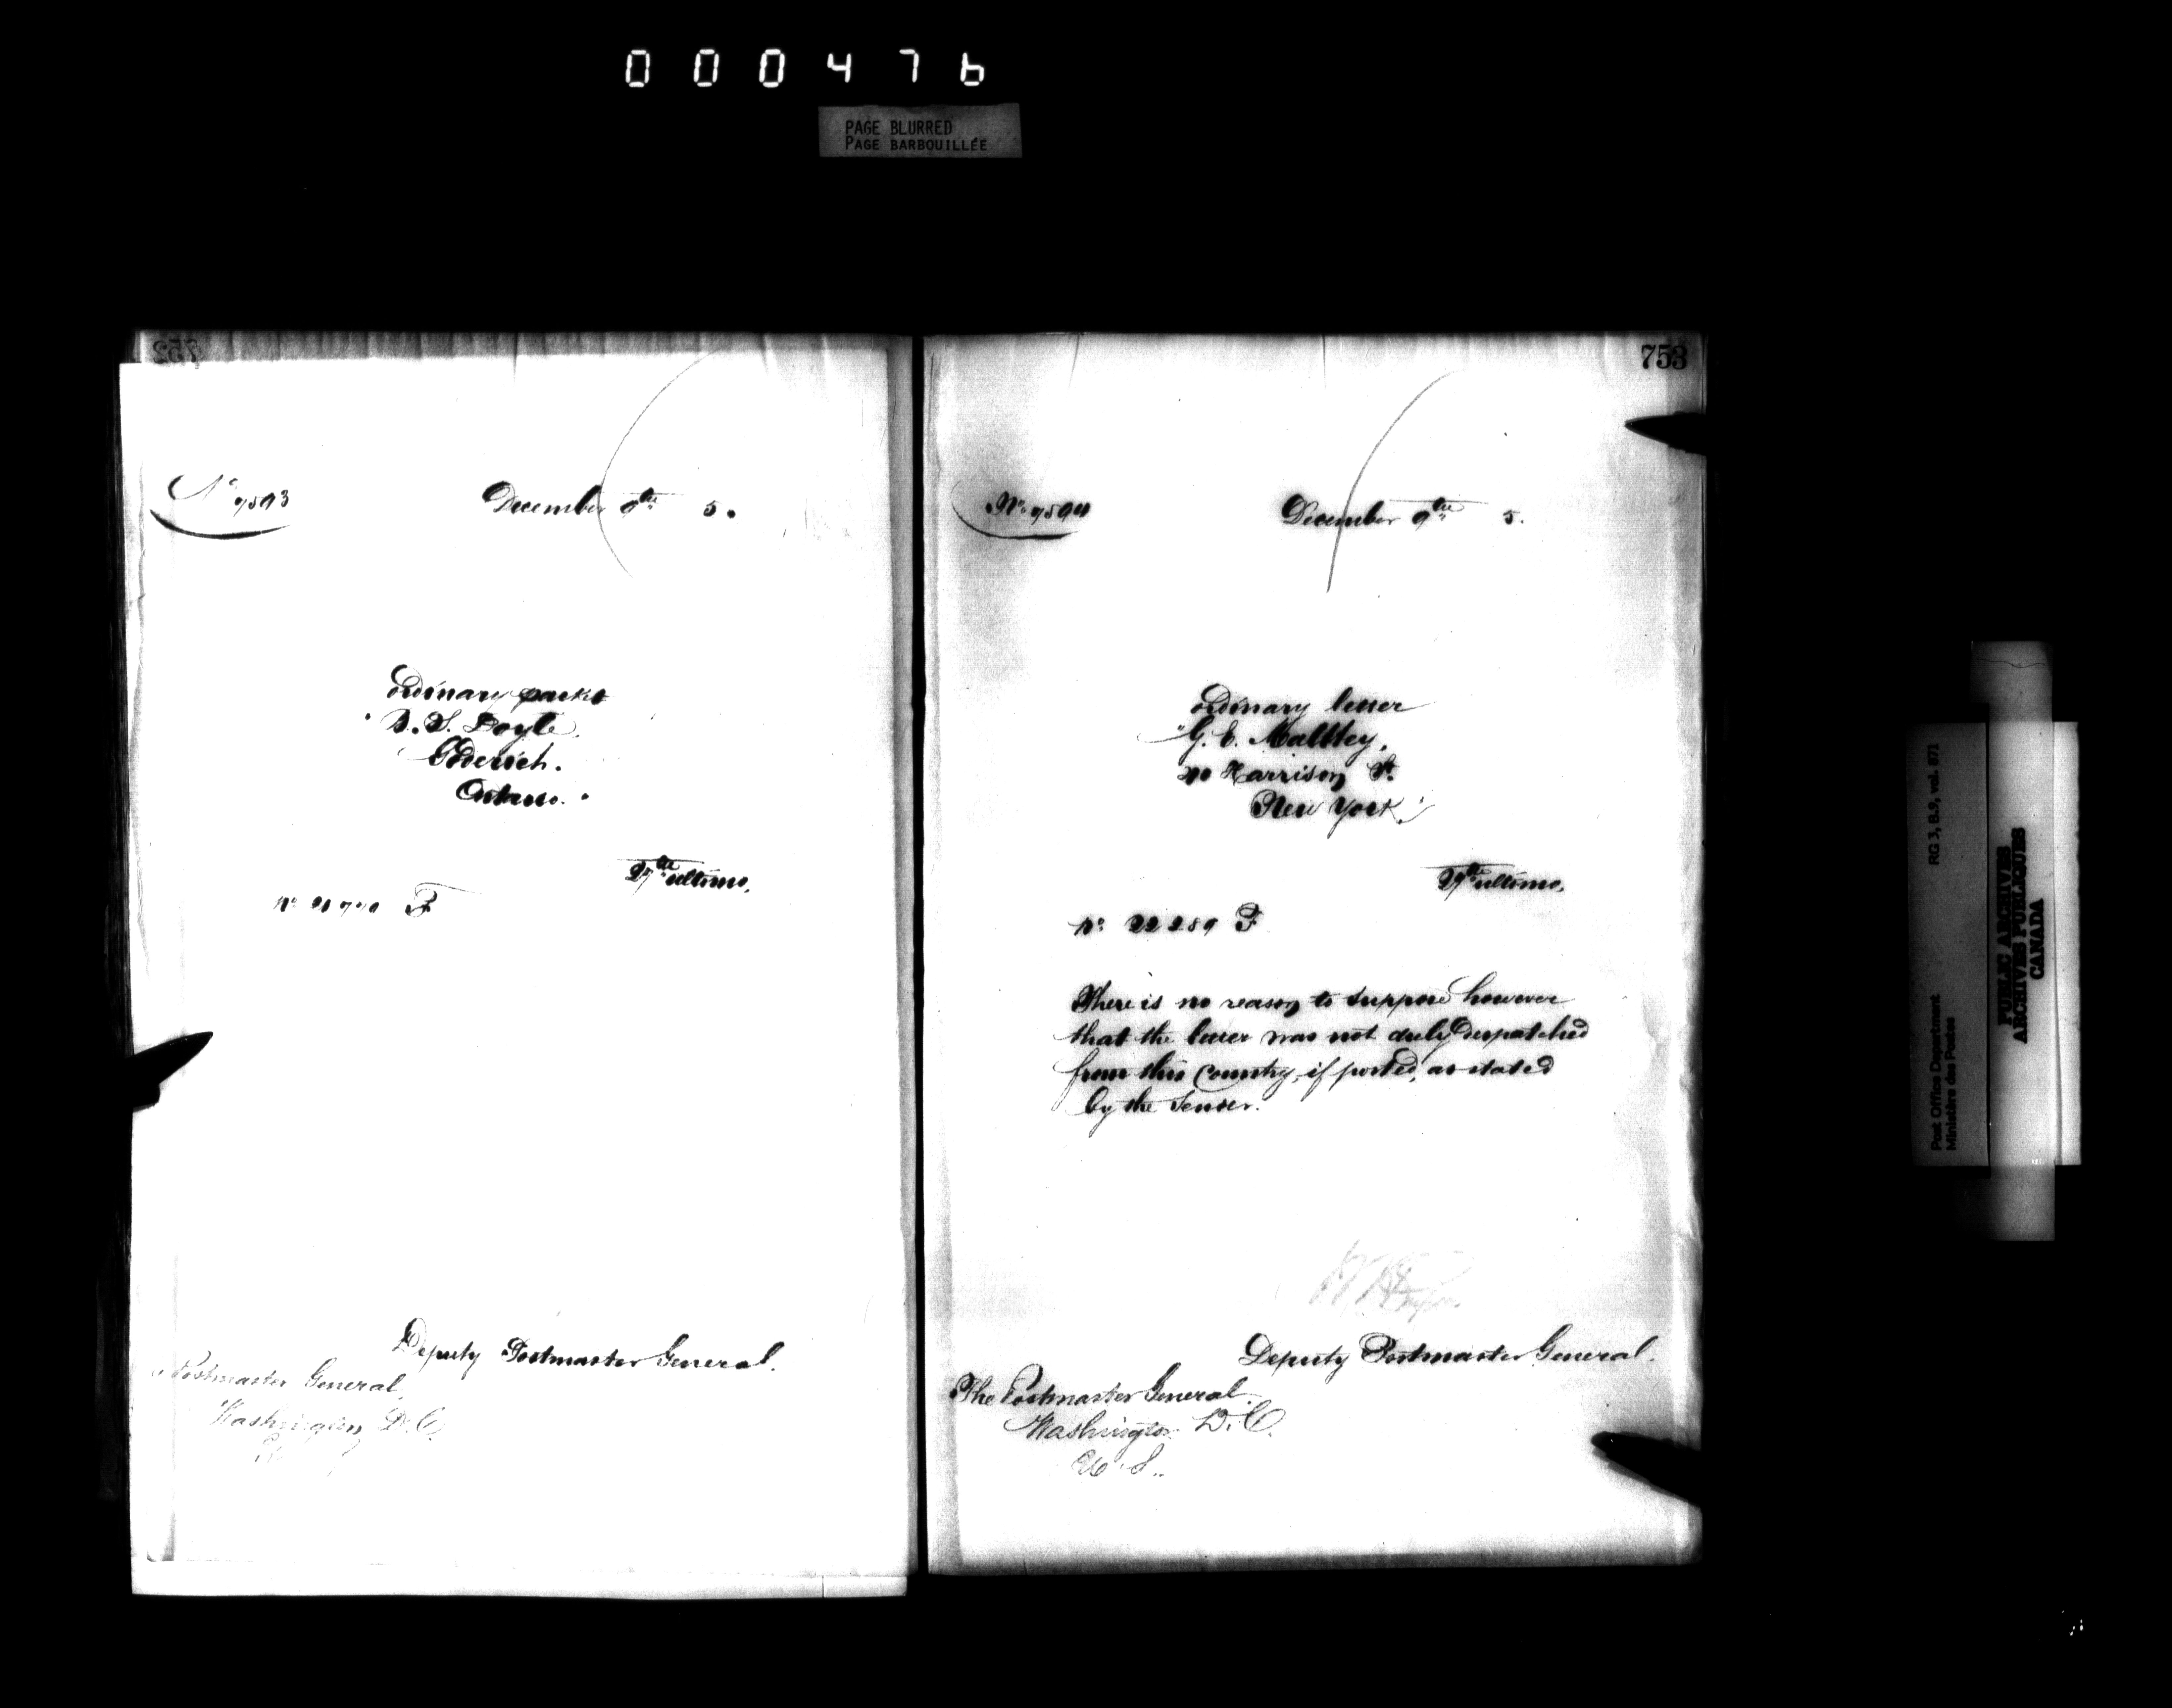 000476
PAGE BLURRED
PAGE BARBOUILLÉE
752
No 7593
December 9th 5.
ordinary packet
S. Doyle
Goderich.
Ontario.
27th ultimo,
No F
Deputy Postmaster General.
Postmaster General,
Washington D.C.
753
No 7594
December 9th 5.
ordinary letter
"G. E. Maltbey,
Harrison St.
New York"
27th ultimo,
No 22289 F
There is no reason to suppose however
that the letter was not duly despatched
from this Country, if posted, as stated
by the Sender.
Deputy Postmaster General.
The Postmaster General.
Washington D.C.
U.S.
Post Office Department
Ministère des Postes
RG 3, B.9, vol. 871
PUBLIC ARCHIVES
ARCHIVES PUBLIQUES
CANADA